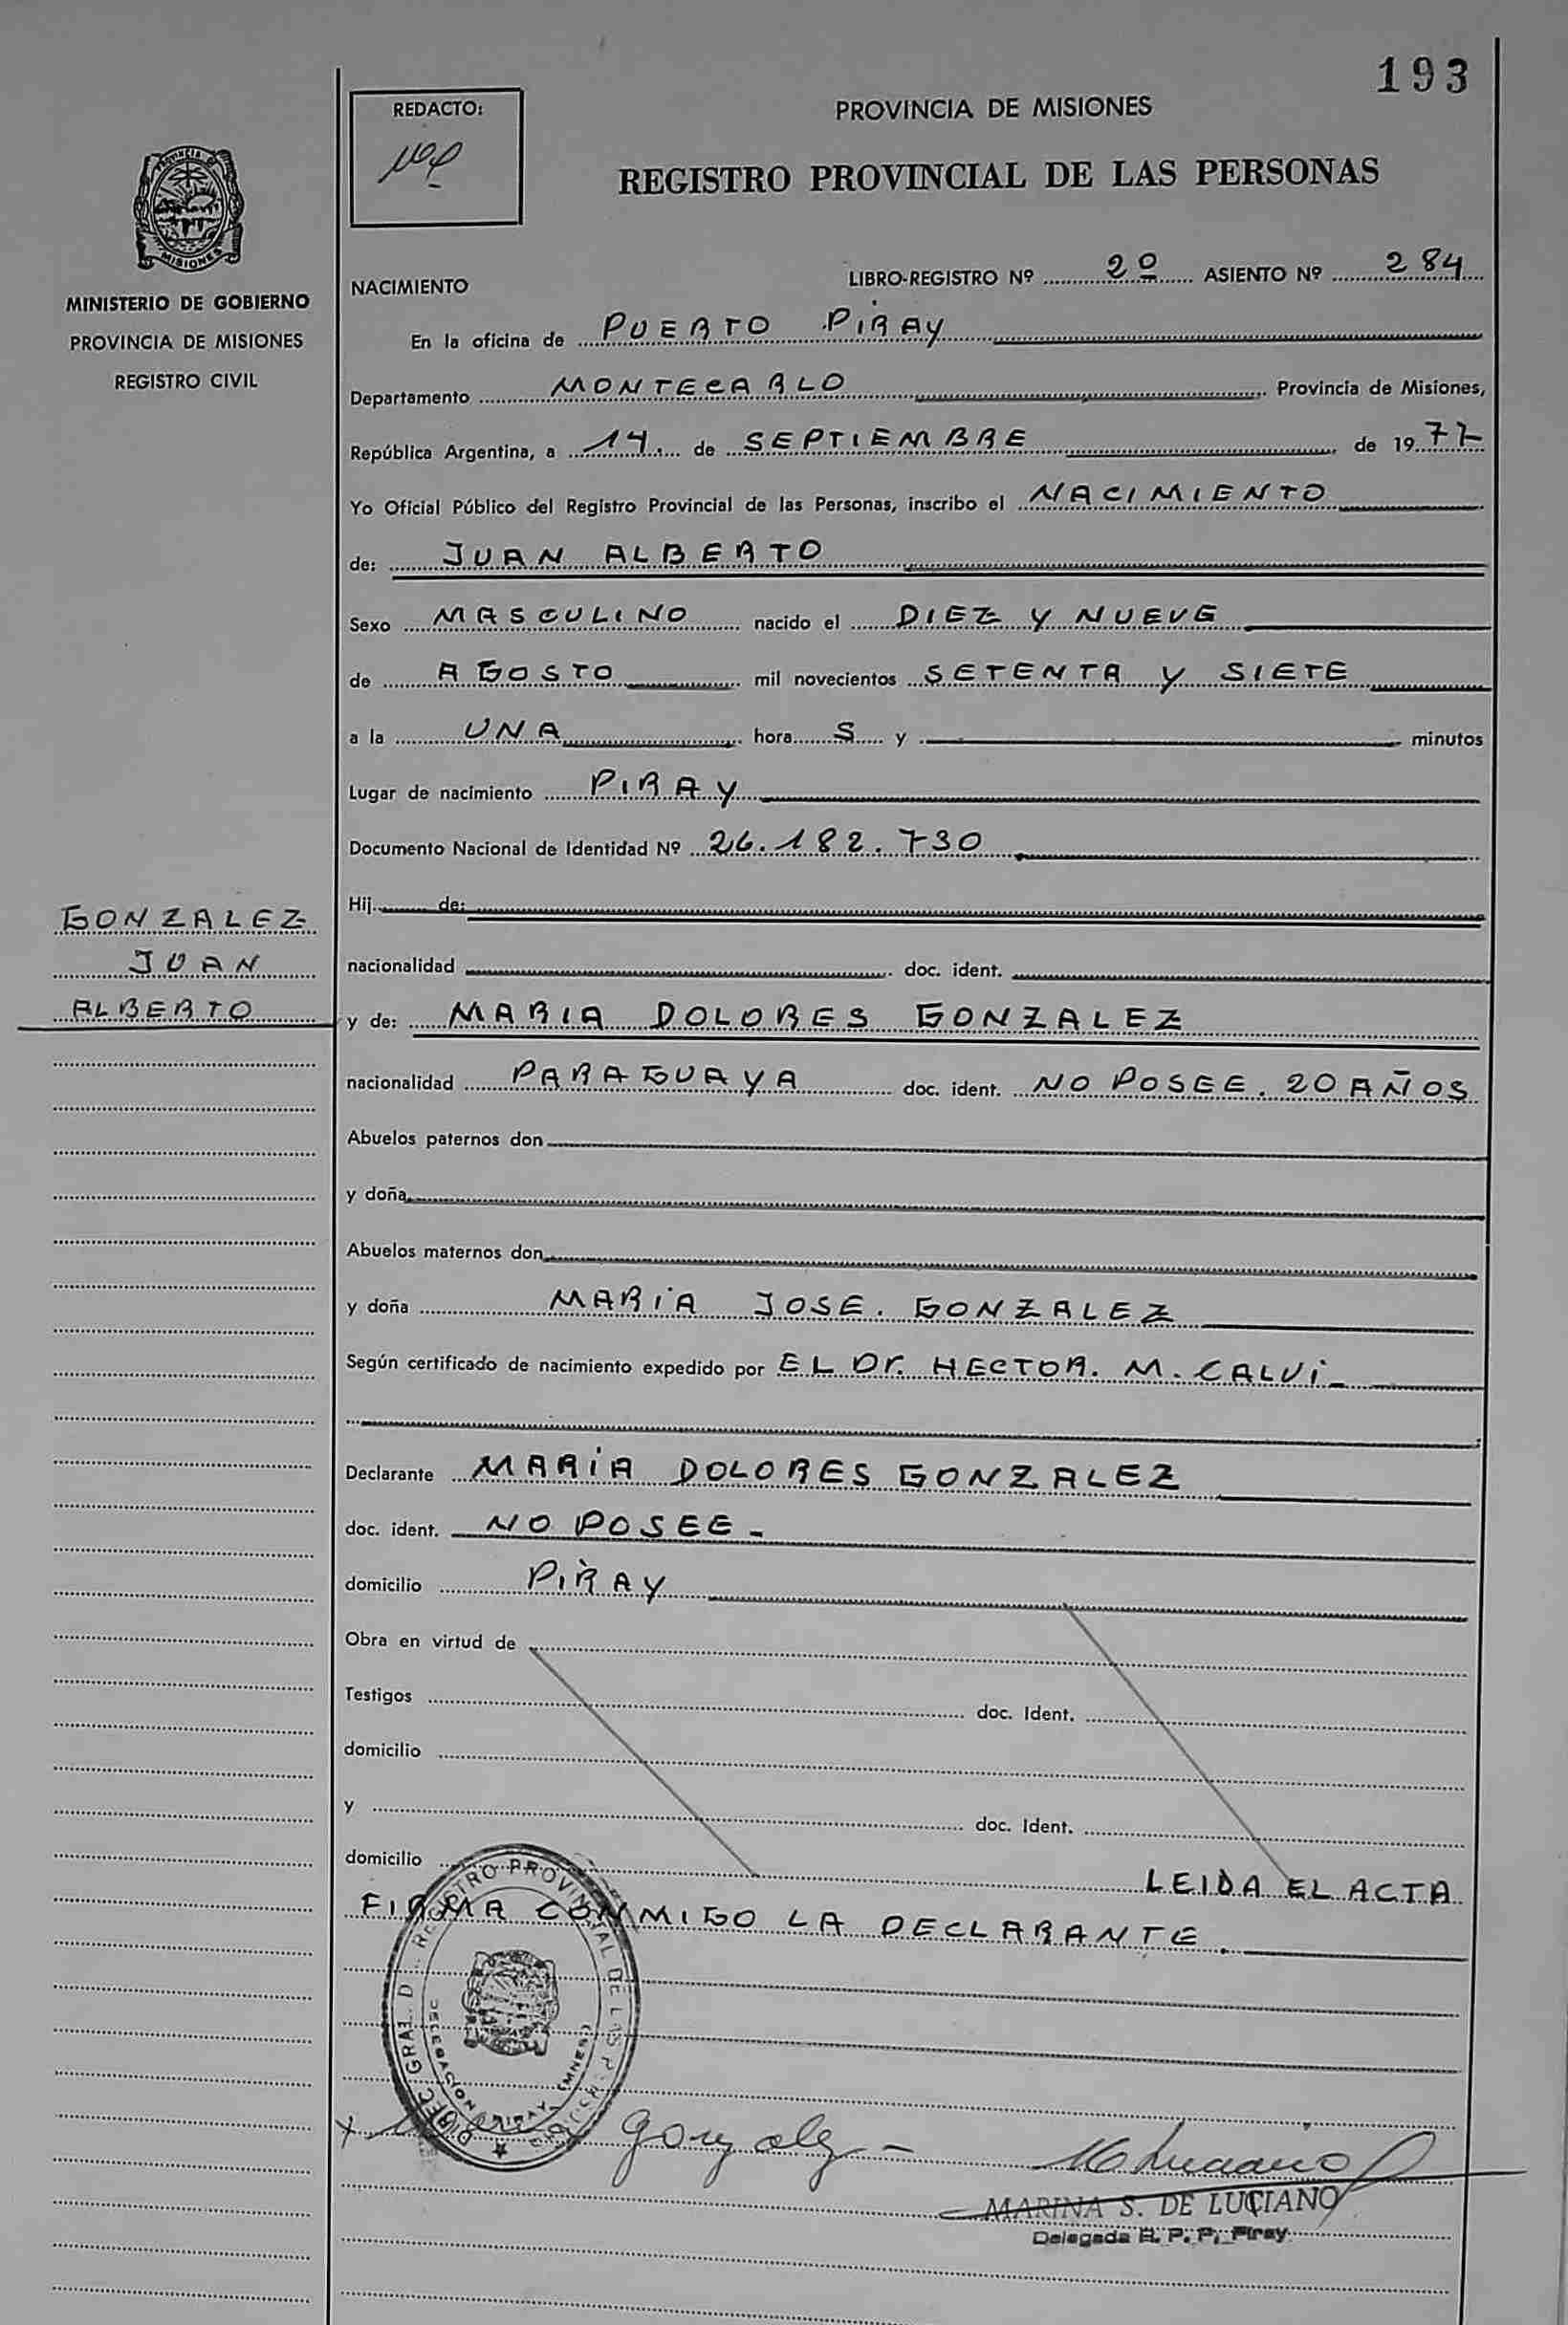 193
REDACTO:
PROVINCIA DE MISIONES
REGISTRO PROVINCIAL DE LAS PERSONAS
PROVINCIA DE
MISIONES
MINISTERIO DE GOBIERNO
PROVINCIA DE MISIONES
REGISTRO CIVIL
NACIMIENTO LIBRO-REGISTRO Nº 2º ASIENTO Nº 284
En la oficina de PUERTO PIRAY
Departamento MONTECARLO Provincia de Misiones,
República Argentina, a 14. de SEPTIEMBRE de 1977
Yo Oficial Público del Registro Provincial de las Personas, inscribo el NACIMIENTO
de: JUAN ALBERTO
Sexo MASCULINO nacido el DIEZ Y NUEVE
de AGOSTO mil novecientos SETENTA Y SIETE
a la UNA hora S y minutos
Lugar de nacimiento PIRAY
Documento Nacional de Identidad Nº 26.182.730
Hij de:
GONZALEZ
JUAN
ALBERTO
nacionalidad doc. ident.
y de: MARIA DOLORES GONZALEZ
nacionalidad PARAGUAYA doc. ident. NO POSEE. 20 AÑOS
Abuelos paternos don
y doña
Abuelos maternos don
y doña MARIA JOSE. GONZALEZ
Según certificado de nacimiento expedido por EL Dr. HECTOR. M. CALVI
Declarante MARIA DOLORES GONZALEZ
doc. ident. NO POSEE -
domicilio PIRAY
Obra en virtud de
Testigos doc. Ident.
domicilio
y doc. Ident.
domicilio LEIDA EL ACTA
FIRMA CONMIGO LA DECLARANTE.
DIREC GRAL. D REGISTRO PROVINCIAL DE LAS PERSONAS
DELEGACION PIRAY (MNES)
Gonzalez
MARINA S. DE LUCIANO
Delegada R. P. P. Piray